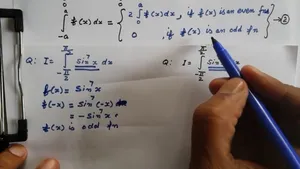 a
∫ f(x)dx = { 2 ∫ f(x)dx, if f(x) is an even fn
-a
0 , if f(x) is an odd fn → ②
Q: I = ∫ sin⁷x dx
-π/2
Q: I = ∫ sin x
-π/2
f(x) = sin⁷x
f(-x) = sin⁷(-x)
= -sin⁷x
f(x) is odd fn